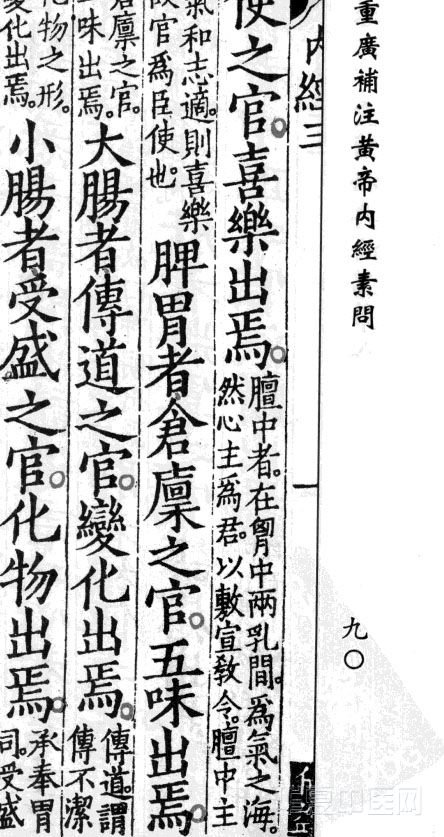 重廣補注黃帝內經素問
九〇
內經三
一
使之官。喜樂出焉。
膻中者。在胷中兩乳間。為氣之海。
然心主為君。以敷宣教令。膻中主
氣和志適。則喜樂
故官為臣使也。
脾胃者倉廩之官。五味出焉。
倉廩之官。
味出焉。
大腸者傳道之官。變化出焉。
傳道。謂
傳不潔
化物之形。
變化出焉。
小腸者受盛之官。化物出焉。
承奉胃
司。受盛
中医网